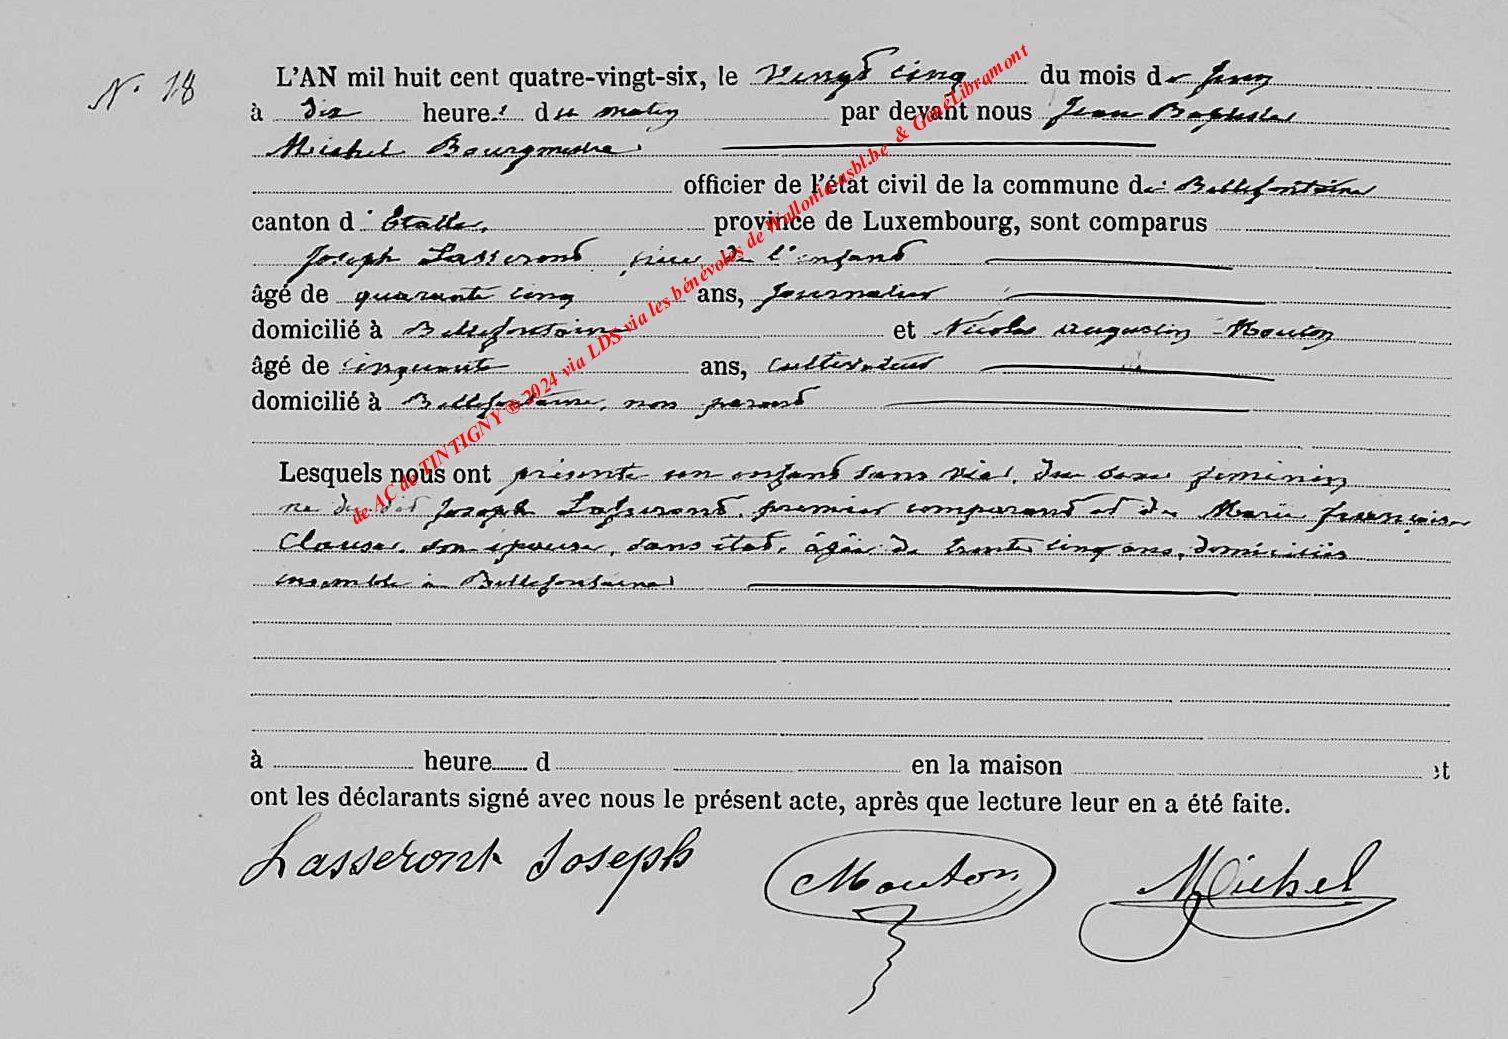 N° 18
L'AN mil huit cent quatre-vingt-six, le vingt cinq du mois de Juin
à dix heures du matin par devant nous Jean Baptiste
Michel Bourgmestre
officier de l'état civil de la commune de Bellefontaine
canton d'Etalle, province de Luxembourg, sont comparus
Joseph Lasseront père de l'enfant
âgé de quarante cinq ans, Journalier
domicilié à Bellefontaine et Nicolas Augustin Mouton
âgé de cinquante ans, cultivateur
domicilié à Bellefontaine, non parent
Lesquels nous ont présenté un enfant sans vie, du sexe féminin
né du dit Joseph Lasseront, premier comparant et de Marie françoise
Clause, son épouse, sans état, âgée de trente cinq ans, domiciliés
ensemble à Bellefontaine
à heure d en la maison et
ont les déclarants signé avec nous le présent acte, après que lecture leur en a été faite.
Lasseront Joseph Mouton Michel
de AC de TINTIGNY ® 2024 via LDS via les bénévoles de Wallonia asbl.be & GénéLibramont